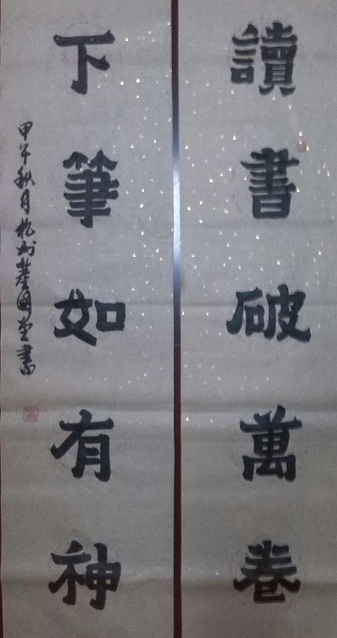 讀書破萬卷
下筆如有神
甲午秋月杭州蔡國堂書